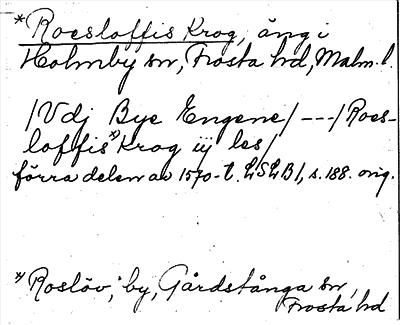 *Roesloffis Krog, äng i
Holmby sn, Frosta hd, Malm. l.
/Vdj Bye Engene/ ---/Roes-
loffis*) Krog iij les/
förra delen av 1570-t. LSLB1, s. 188. orig.
*) Roslöv, by, Gårdstånga sn,
Frosta hd